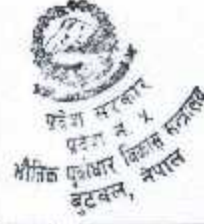 प्रदेश सरकार
प्रदेश नं. ५
भौतिक पूर्वाधार विकास मन्त्रालय
बुटवल, नेपाल